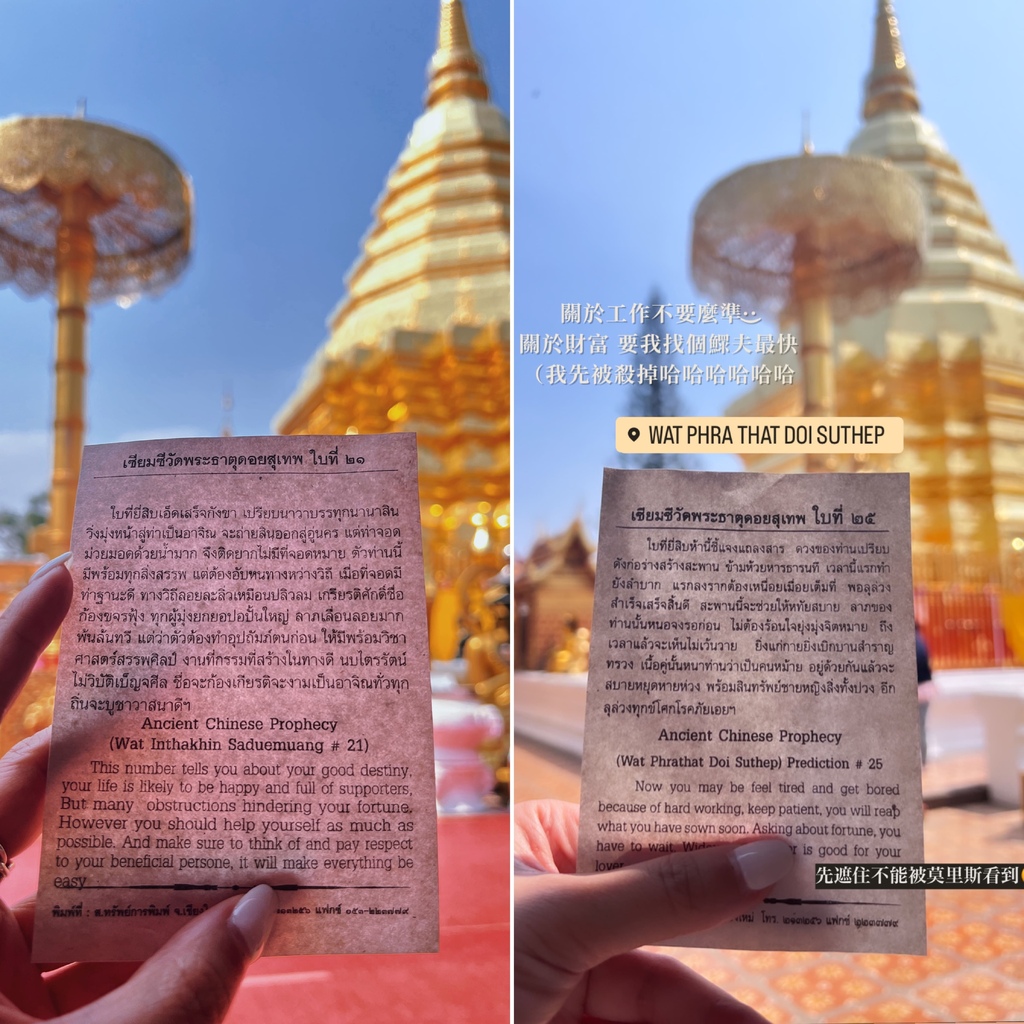 เซียมซีวัดพระธาตุดอยสุเทพ ใบที่ ๒๑
ใบที่ยี่สิบเอ็ดเสร็จกังขา เปรียบนาวาบรรทุกนานาสิน
วิ่งมุ่งหน้าสู่ท่าเป็นอาจิณ จะถ่ายสินออกสู่อู่นคร แต่ท่าจอด
ม่วยมอดด้วยน้ำมาก จึงติดยากไม่มีที่จอดหมาย ตัวท่านนี้
มีพร้อมทุกสิ่งสรรพ แต่ต้องอับหนทางหว่างวิถี เมื่อที่จอดมี
ทำฐานะดี ทางวิถีลอยละลิ่วเหมือนปลิวลม เกรียรติศักดิ์ชื่อ
ก้องขจรฟุ้ง ทุกผู้มุ่งยกยอปอปั้นใหญ่ ลาภเลื่อนลอยมาก
พันล้นทวี แต่ว่าตัวต้องทำอุปถัมภ์ตนก่อน ให้มีพร้อมวิชา
ศาสตร์สรรพศิลป์ งานที่กรรมที่สร้างในทางดี นบไตรรัตน์
ไม่วิบัติเบ็ญจศีล ชื่อจะก้องเกียรติจะงามเป็นอาจิณทั่วทุก
ถิ่นจะบูชาวาสนาดีฯ
Ancient Chinese Prophecy
(Wat Inthakhin Saduemuang # 21)
This number tells you about your good destiny,
your life is likely to be happy and full of supporters,
But many obstructions hindering your fortune.
However you should help yourself as much as
possible. And make sure to think of and pay respect
to your beneficial persone, it will make everything be
easy
พิมพ์ที่ : ส.ทรัพย์การพิมพ์ แฟกซ์ ๐๕๓-๒๒๓๗๗๔
關於工作不要麼準
關於財富 要我找個鰥夫最快
（我先被殺掉哈哈哈哈哈哈
WAT PHRA THAT DOI SUTHEP
เซียมซีวัดพระธาตุดอยสุเทพ ใบที่ ๒๕
ใบที่ยี่สิบห้านี้ชี้แจงแถลงสาร ดวงของท่านเปรียบ
ดังก่อร่างสร้างสะพาน ข้ามห้วยหารธารนที เวลานี้แรกทำ
ยังลำบาก แรกลงรากต้องเหนื่อยเมื่อยเต็มที่ พอลุล่วง
สำเร็จเสร็จสิ้นดี สะพานนี้จะช่วยให้หทัยสบาย ลาภของ
ท่านนั้นหนอจงรอก่อน ไม่ต้องร้อนใจยุ่งมุ่งจิตหมาย ถึง
เวลาแล้วจะเห็นไม่เว้นวาย ยิ่งแก่กายยิ่งเบิกบานสำราญ
ทรวง เนื้อคู่นั้นหนาท่านว่าเป็นคนหม้าย อยู่ด้วยกันแล้วจะ
สบายหยุดหายห่วง พร้อมสินทรัพย์ชายหญิงสิ่งทั้งปวง อีก
ลุล่วงทุกข์โศกโรคภัยเอยฯ
Ancient Chinese Prophecy
(Wat Phrathat Doi Suthep) Prediction # 25
Now you may be feel tired and get bored
because of hard working, keep patient, you will reap
what you have sown soon. Asking about fortune, you
have to wait. is good for your
lover
先遮住不能被莫里斯看到
โทร. ๒๑๓๒๕๖ แฟกซ์ ๒๒๓๗๗๔